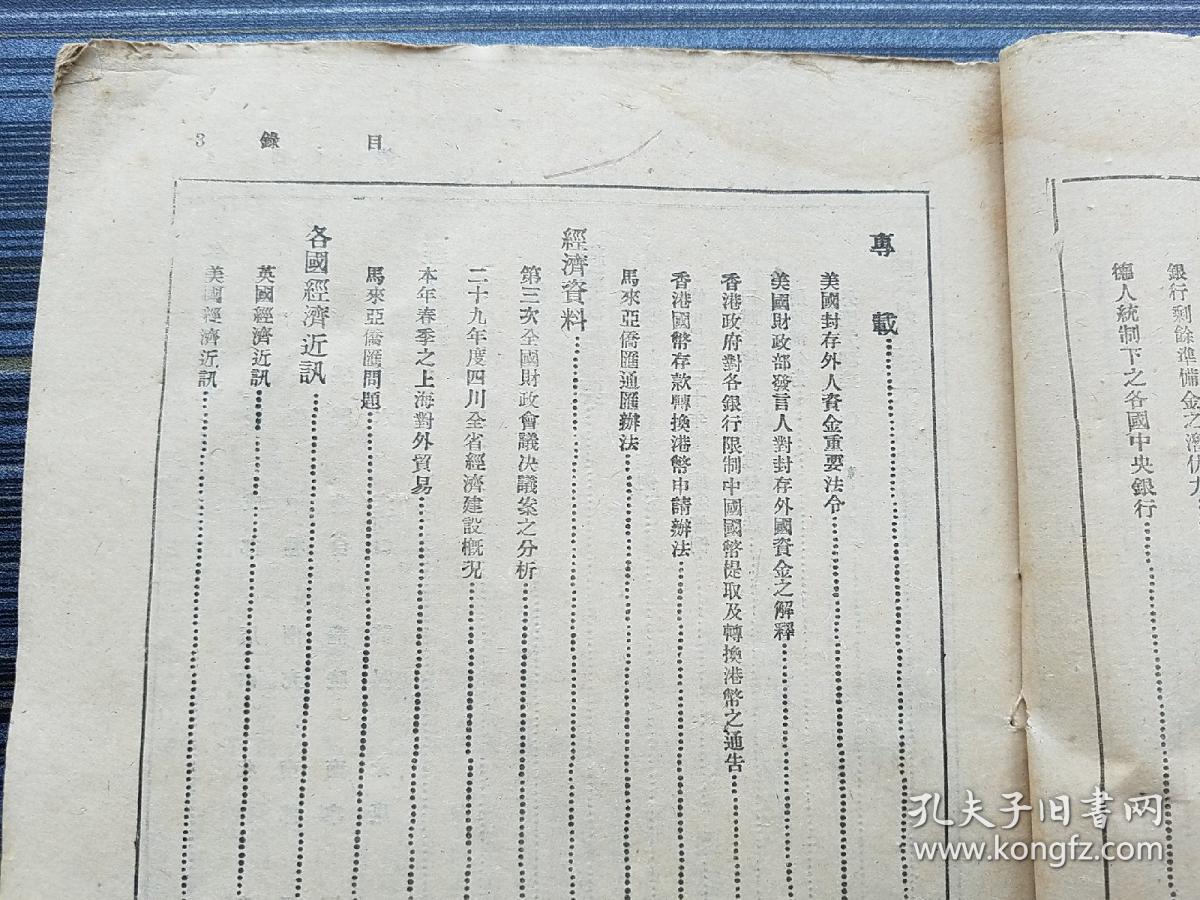 銀行剩餘準備金之潛伏力
德人統制下之各國中央銀行
目錄 3
專載
美國封存外人資金重要法令
美國財政部發言人對封存外國資金之解釋
香港政府對各銀行限制中國國幣提取及轉換港幣之通告
香港國幣存款轉換港幣申請辦法
馬來亞僑匯通匯辦法
經濟資料
第三次全國財政會議決議案之分析
二十九年度四川全省經濟建設概況
本年春季之上海對外貿易
馬來亞僑匯問題
各國經濟近訊
英國經濟近訊
美國經濟近訊
孔夫子旧书网
www.kongfz.com